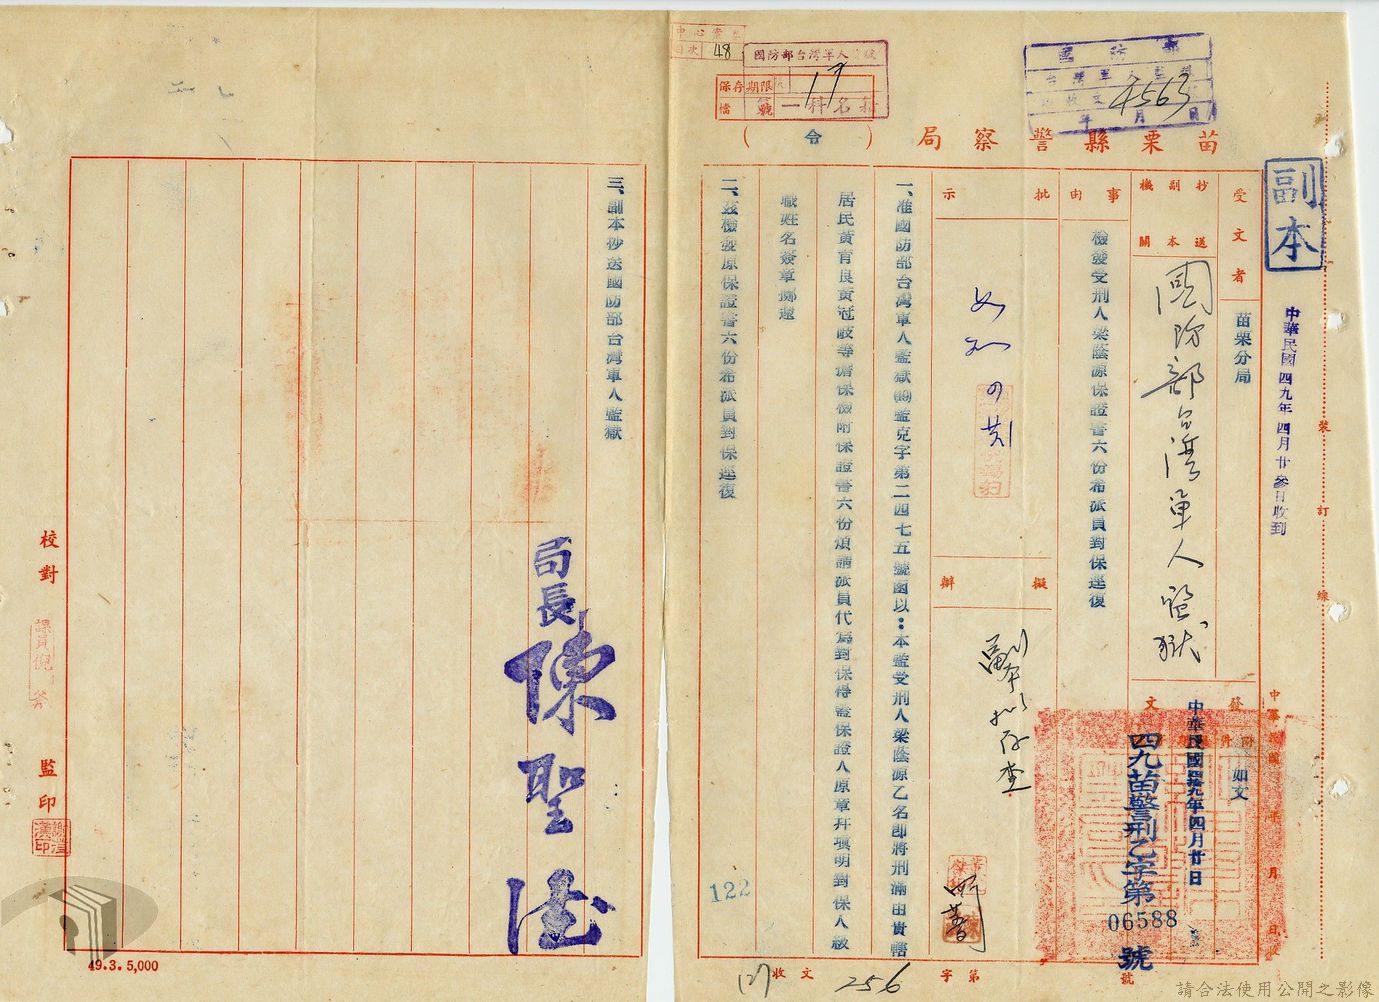 副本
中華民國四九年四月廿參日收到
裝
訂
線
國防部
台灣軍人監獄
收文
4563
年 月 日
苗栗縣警察局
(令)
中心
目次 48
國防部台灣軍人
保存期限
檔號
17
受文者
苗栗分局
抄送副本機關
國防部台灣軍人監獄
發文
附件
如文
中華民國肆拾九年四月廿日
四九苗警刑乙字第
06588
號
中華民國 年 月 日
事由
檢發受刑人梁蔭源保證書六份希派員對保逕復
批示
如擬
擬辦
副本擬存查
一、准國防部台灣軍人監獄(49)監克字第二四七五號函以：本監受刑人梁蔭源乙名即將刑滿由貴轄
居民黃育良黃冠岐等擔保檢附保證書六份煩請派員代為對保得蓋保證人原章并填明對保人級
職姓名簽章擲還
二、茲檢發原保證書六份希派員對保逕復
三、副本抄送國防部台灣軍人監獄
局長
陳聖德
校對
課員倪
監印
122
收文
字第
256
號
49.3. 5,000
請合法使用公開之影像